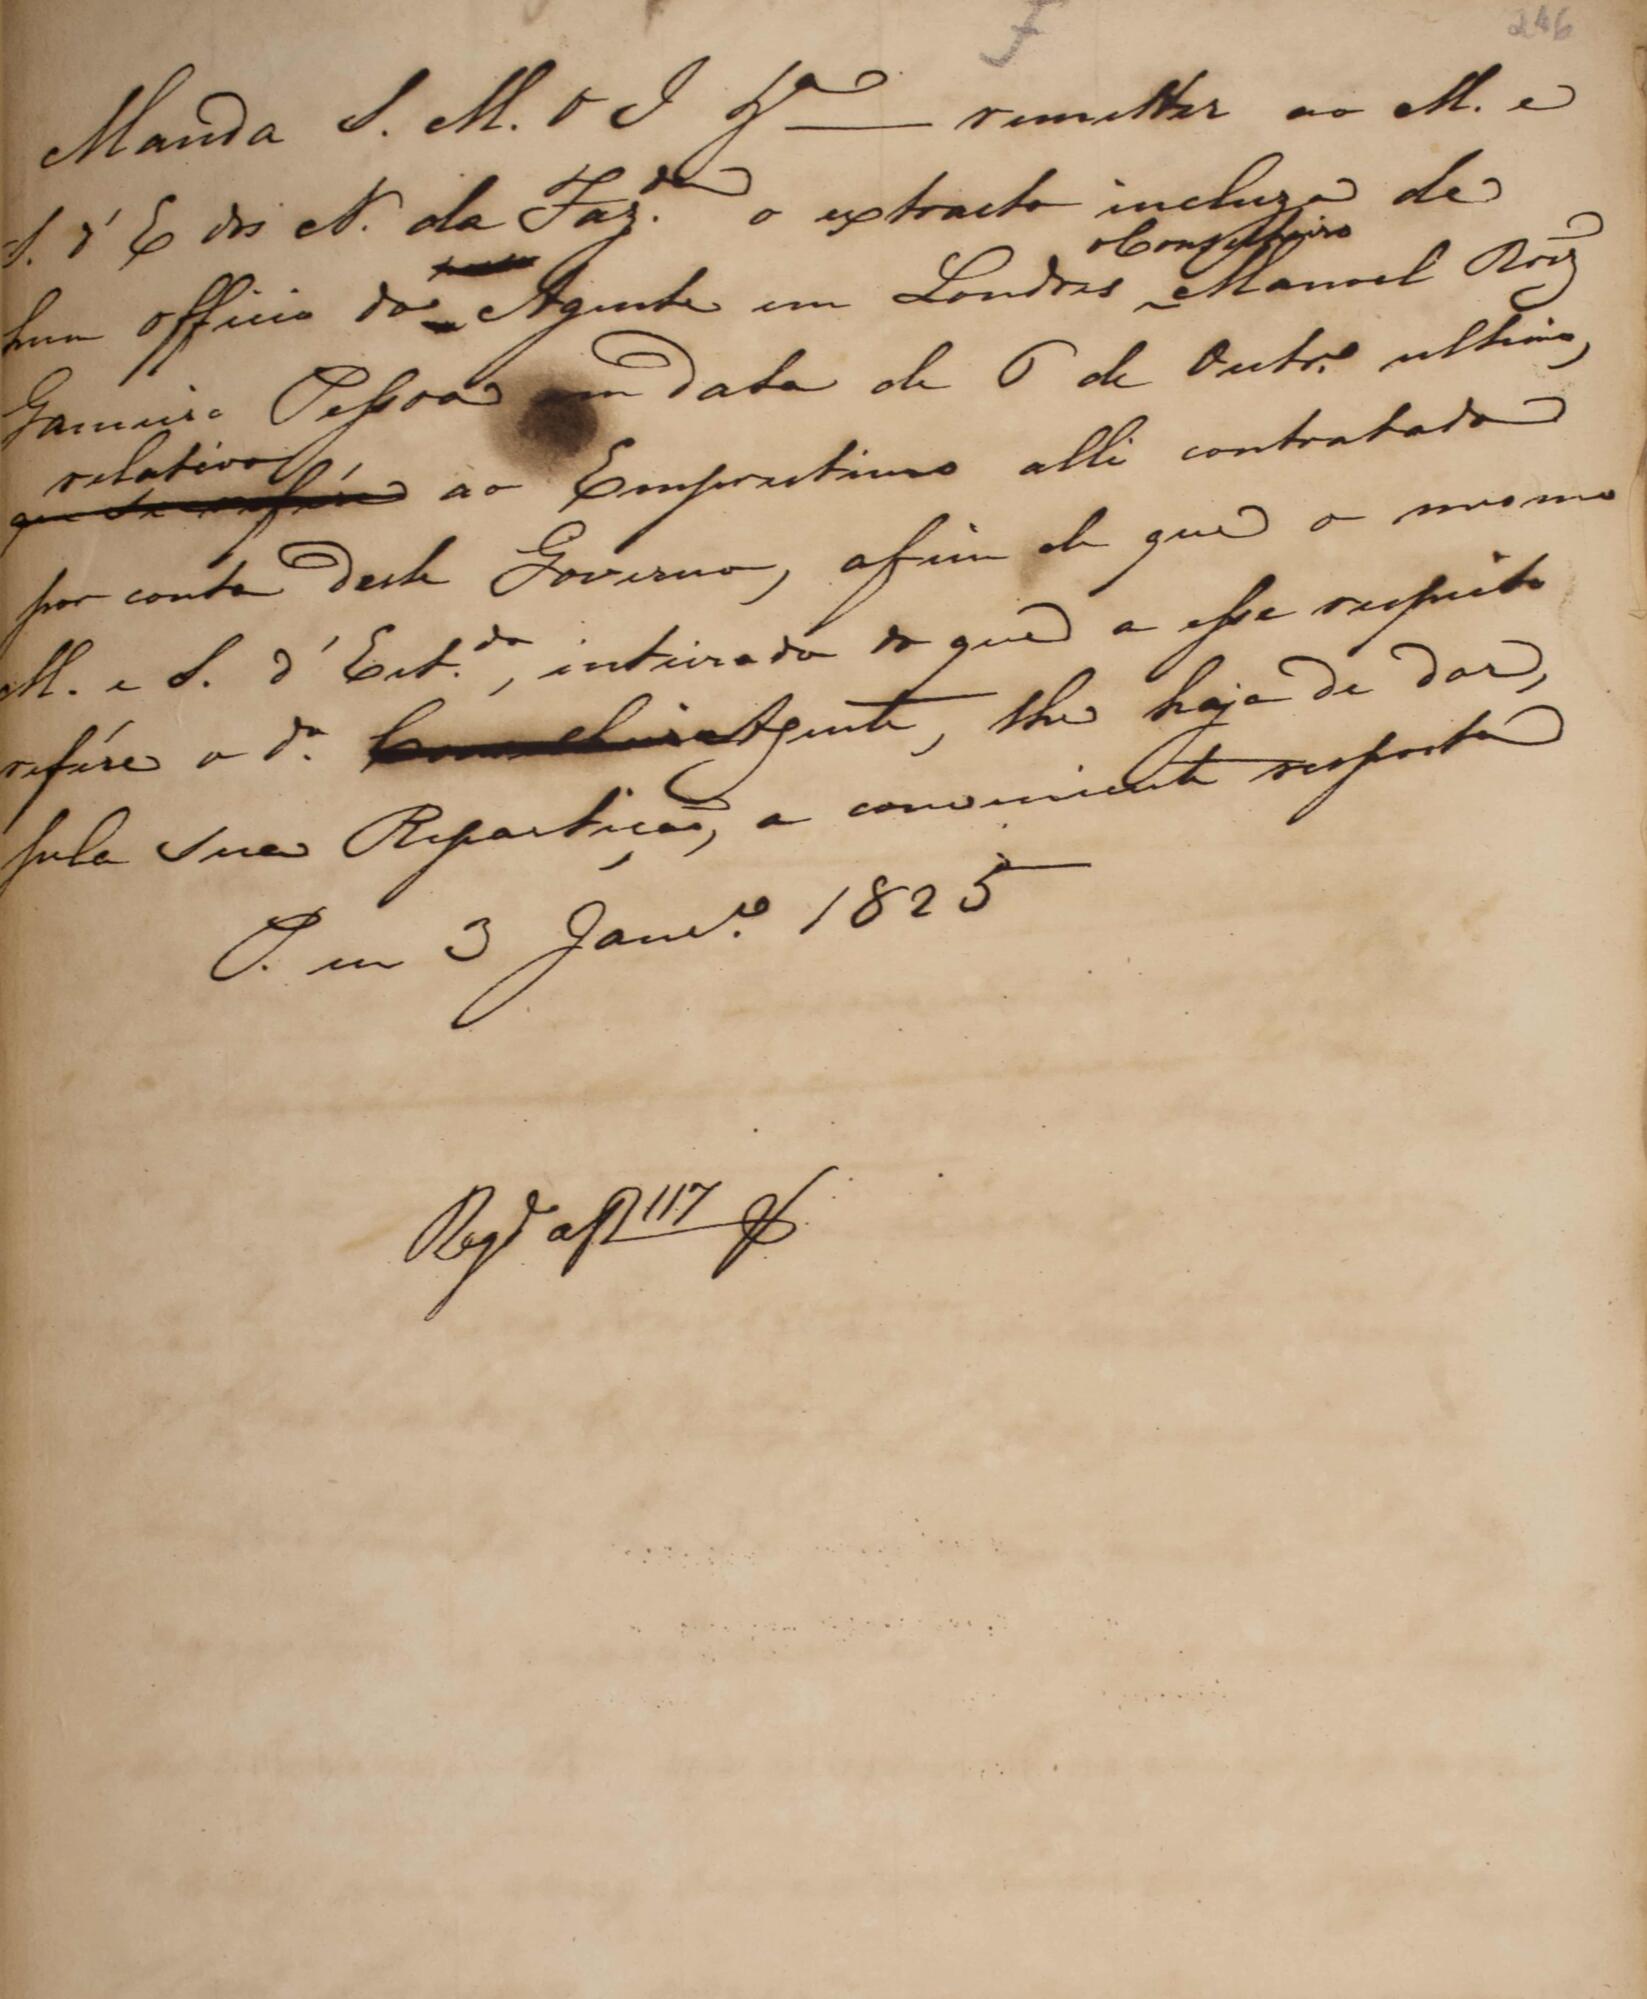 246
Manda S. M. O I. P.ª remetter ao M. e
S. d'E dos N. da Faz.da o extracto incluzo de
o Conselheiro
hum officio do Agente em Londres Manoel Roiz
Gameiro Pessoa em data de 6 de Outr.o ultimo,
relativo
que se refére ao Emprestimo alli contratado
por conta deste Governo, afim de que o mesmo
M. e S. d'Est.do, inteirado do que a esse respeito
refére o d.o Conselheiro Agente, lhe haja de dar,
pela sua Repartição, a conveniente resposta
P. em 3 Janr.o 1825
Reg.do a f 117